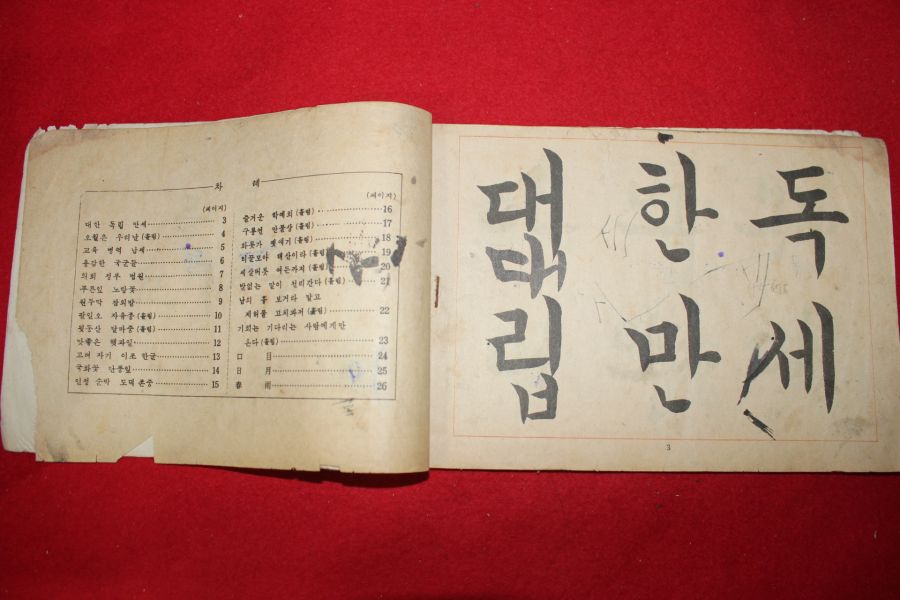 차 례
(페이지)
대한 독립 만세 ……… 3
오월은 우리날(흘림) ……… 4
교육 병역 납세 ……… 5
용감한 국군들 ……… 6
의회 정부 법원 ……… 7
푸른잎 노랑꽃 ……… 8
원두막 참외밭 ……… 9
팔일오 자유종(흘림) ……… 10
뒷동산 달마중(흘림) ……… 11
맛좋은 햇과일 ……… 12
고려 자기 이조 한글 ……… 13
국화꽃 단풍잎 ……… 14
인정 순박 도덕 존중 ……… 15
(페이지)
즐거운 학예회(흘림) ……… 16
구룡연 만물상(흘림) ……… 17
화롯가 옛얘기(흘림) ……… 18
티끌모아 태산이라(흘림) ……… 19
세살버릇 여든까지(흘림) ……… 20
발없는 말이 천리간다(흘림) ……… 21
남의 흉 보거다 말고
제허물 고치과저(흘림) ……… 22
기회는 기다리는 사람에게만
온다(흘림) ……… 23
口 目 ……… 24
日 月 ……… 25
春 雨 ……… 26
대 한 독
대
립 만 세
3